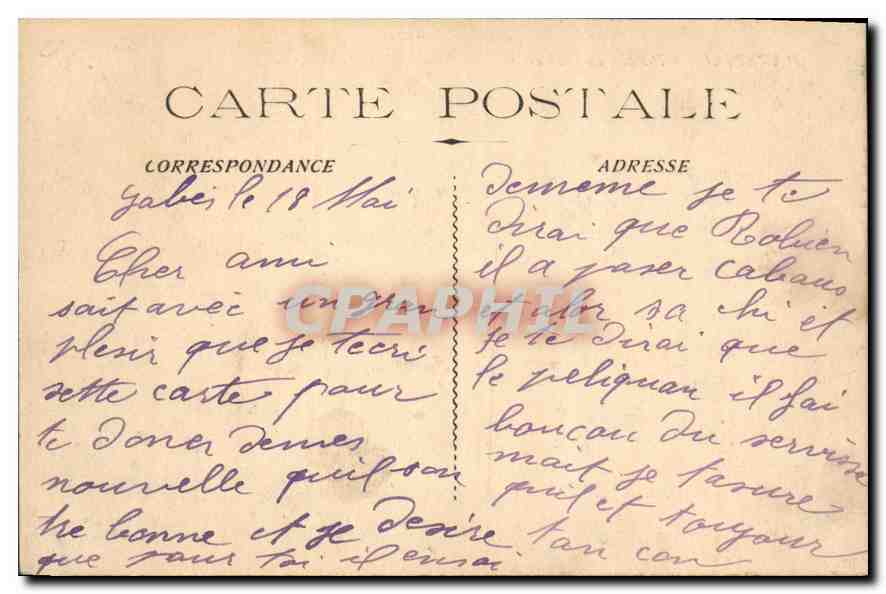 CARTE POSTALE
CORRESPONDANCE
gabes le 18 Mai
Cher ami
sait avec un gran
plesir que je tecri
sette carte pour
te doner demes
nouvelle quil son
tre bonne et je desire
que pour toi il ensoi
ADRESSE
dememe je te
dirai que Robien
il a paser cabano
et alor sa chi et
je te dirai que
le peliquan il fai
boucou du servisse
mait je tasure
quil et toujour
tan con
CPAPHIL